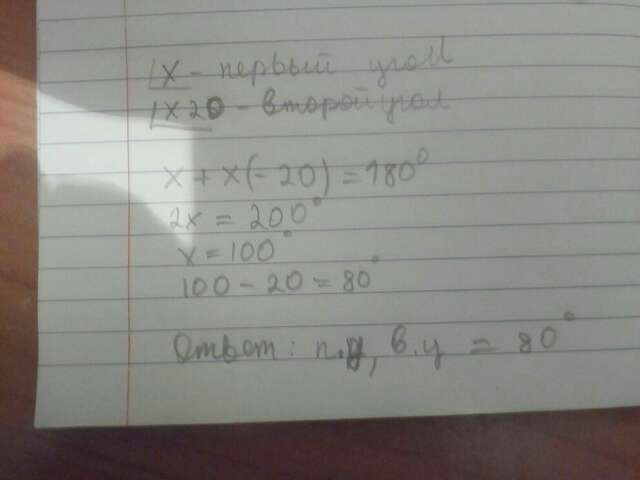 x - первый угол
x20 - второй угол
x + x(-20) = 180°
2x = 200°
x = 100°
100 - 20 = 80°
Ответ: п.у, в.у = 80°